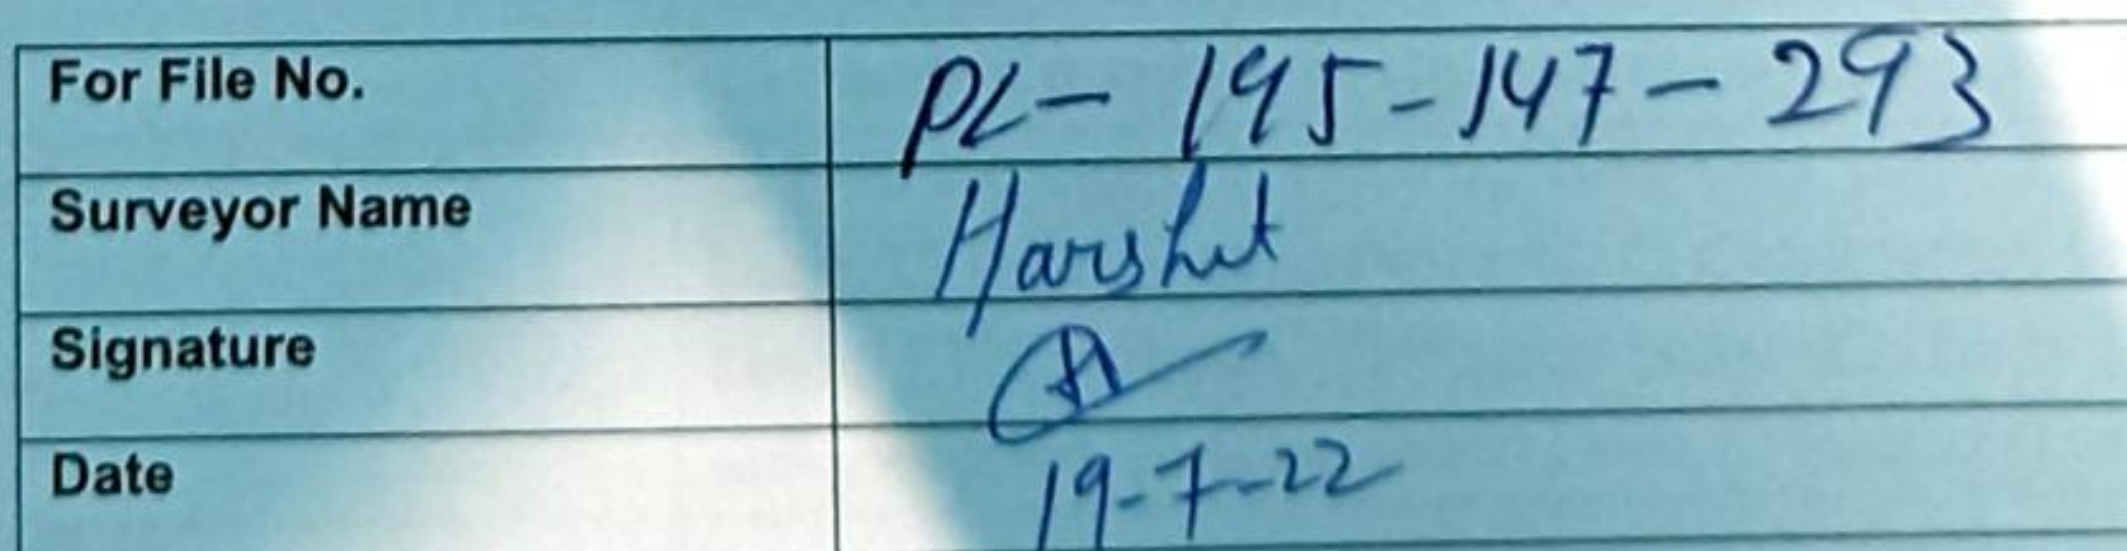 For File No. PL- 195-147-293
Surveyor Name Harshit
Signature
Date 19-7-22